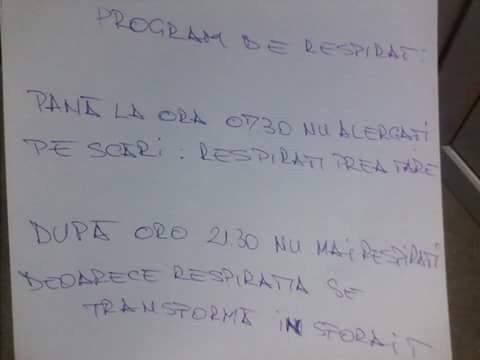 PROGRAM DE RESPIRAT:
PANĂ LA ORA 0730 NU ALERGATI
PE SCARI : RESPIRATI PREA TARE
DUPĂ ORO 21.30 NU MAI RESPIRATI
DEOARECE RESPIRATIA SE
TRANSTORMĂ IN STORAIT